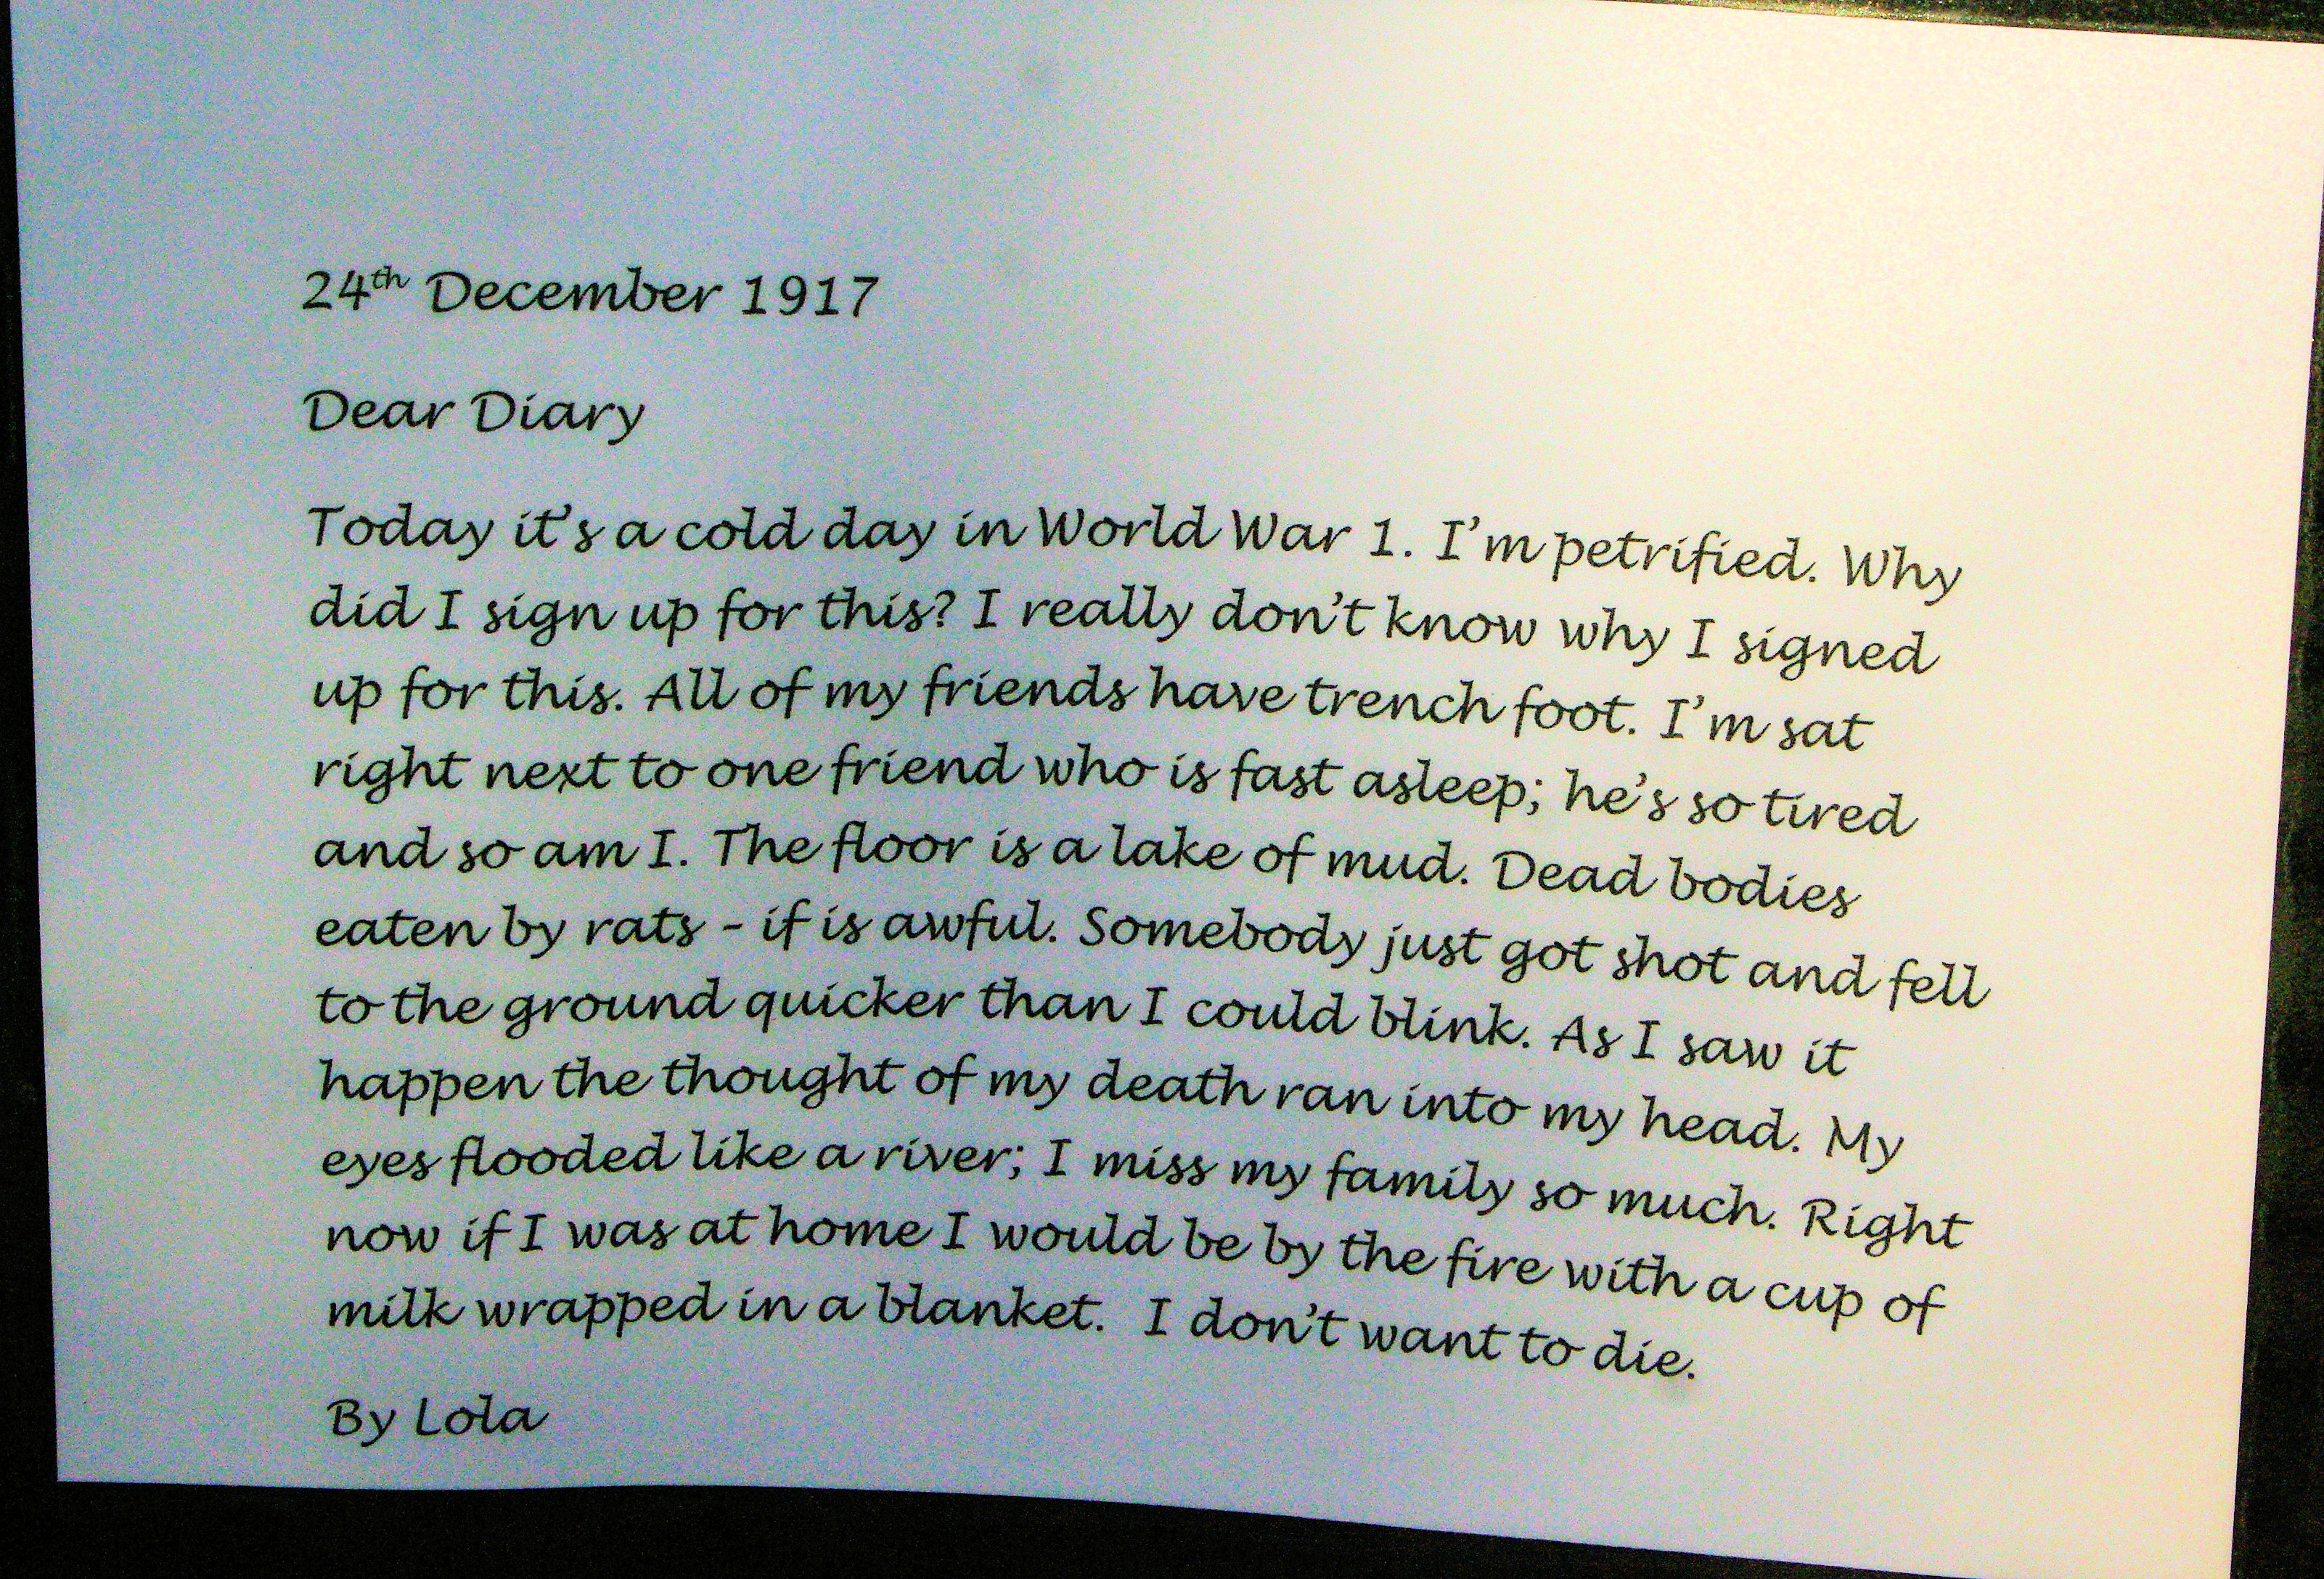 24th December 1917
Dear Diary
Today it's a cold day in World War 1. I'm petrified. Why
did I sign up for this? I really don't know why I signed
up for this. All of my friends have trench foot. I'm sat
right next to one friend who is fast asleep; he's so tired
and so am I. The floor is a lake of mud. Dead bodies
eaten by rats - if is awful. Somebody just got shot and fell
to the ground quicker than I could blink. As I saw it
happen the thought of my death ran into my head. My
eyes flooded like a river; I miss my family so much. Right
now if I was at home I would be by the fire with a cup of
milk wrapped in a blanket.  I don't want to die.
By Lola